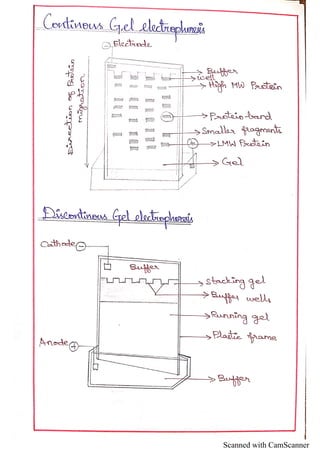 Continous Gel electrophoresis
⊖ Electrode
Buffer
well
High MW Protein
Direction of Protein
migration
Protein-band
Smaller fragments
LMW Protein
Gel
Discontinous Gel electrophoresis
Cathode ⊖
Buffer
Stacking gel
Buffer wells
Running gel
Plastic frame
Anode ⊕
Buffer
Scanned with CamScanner